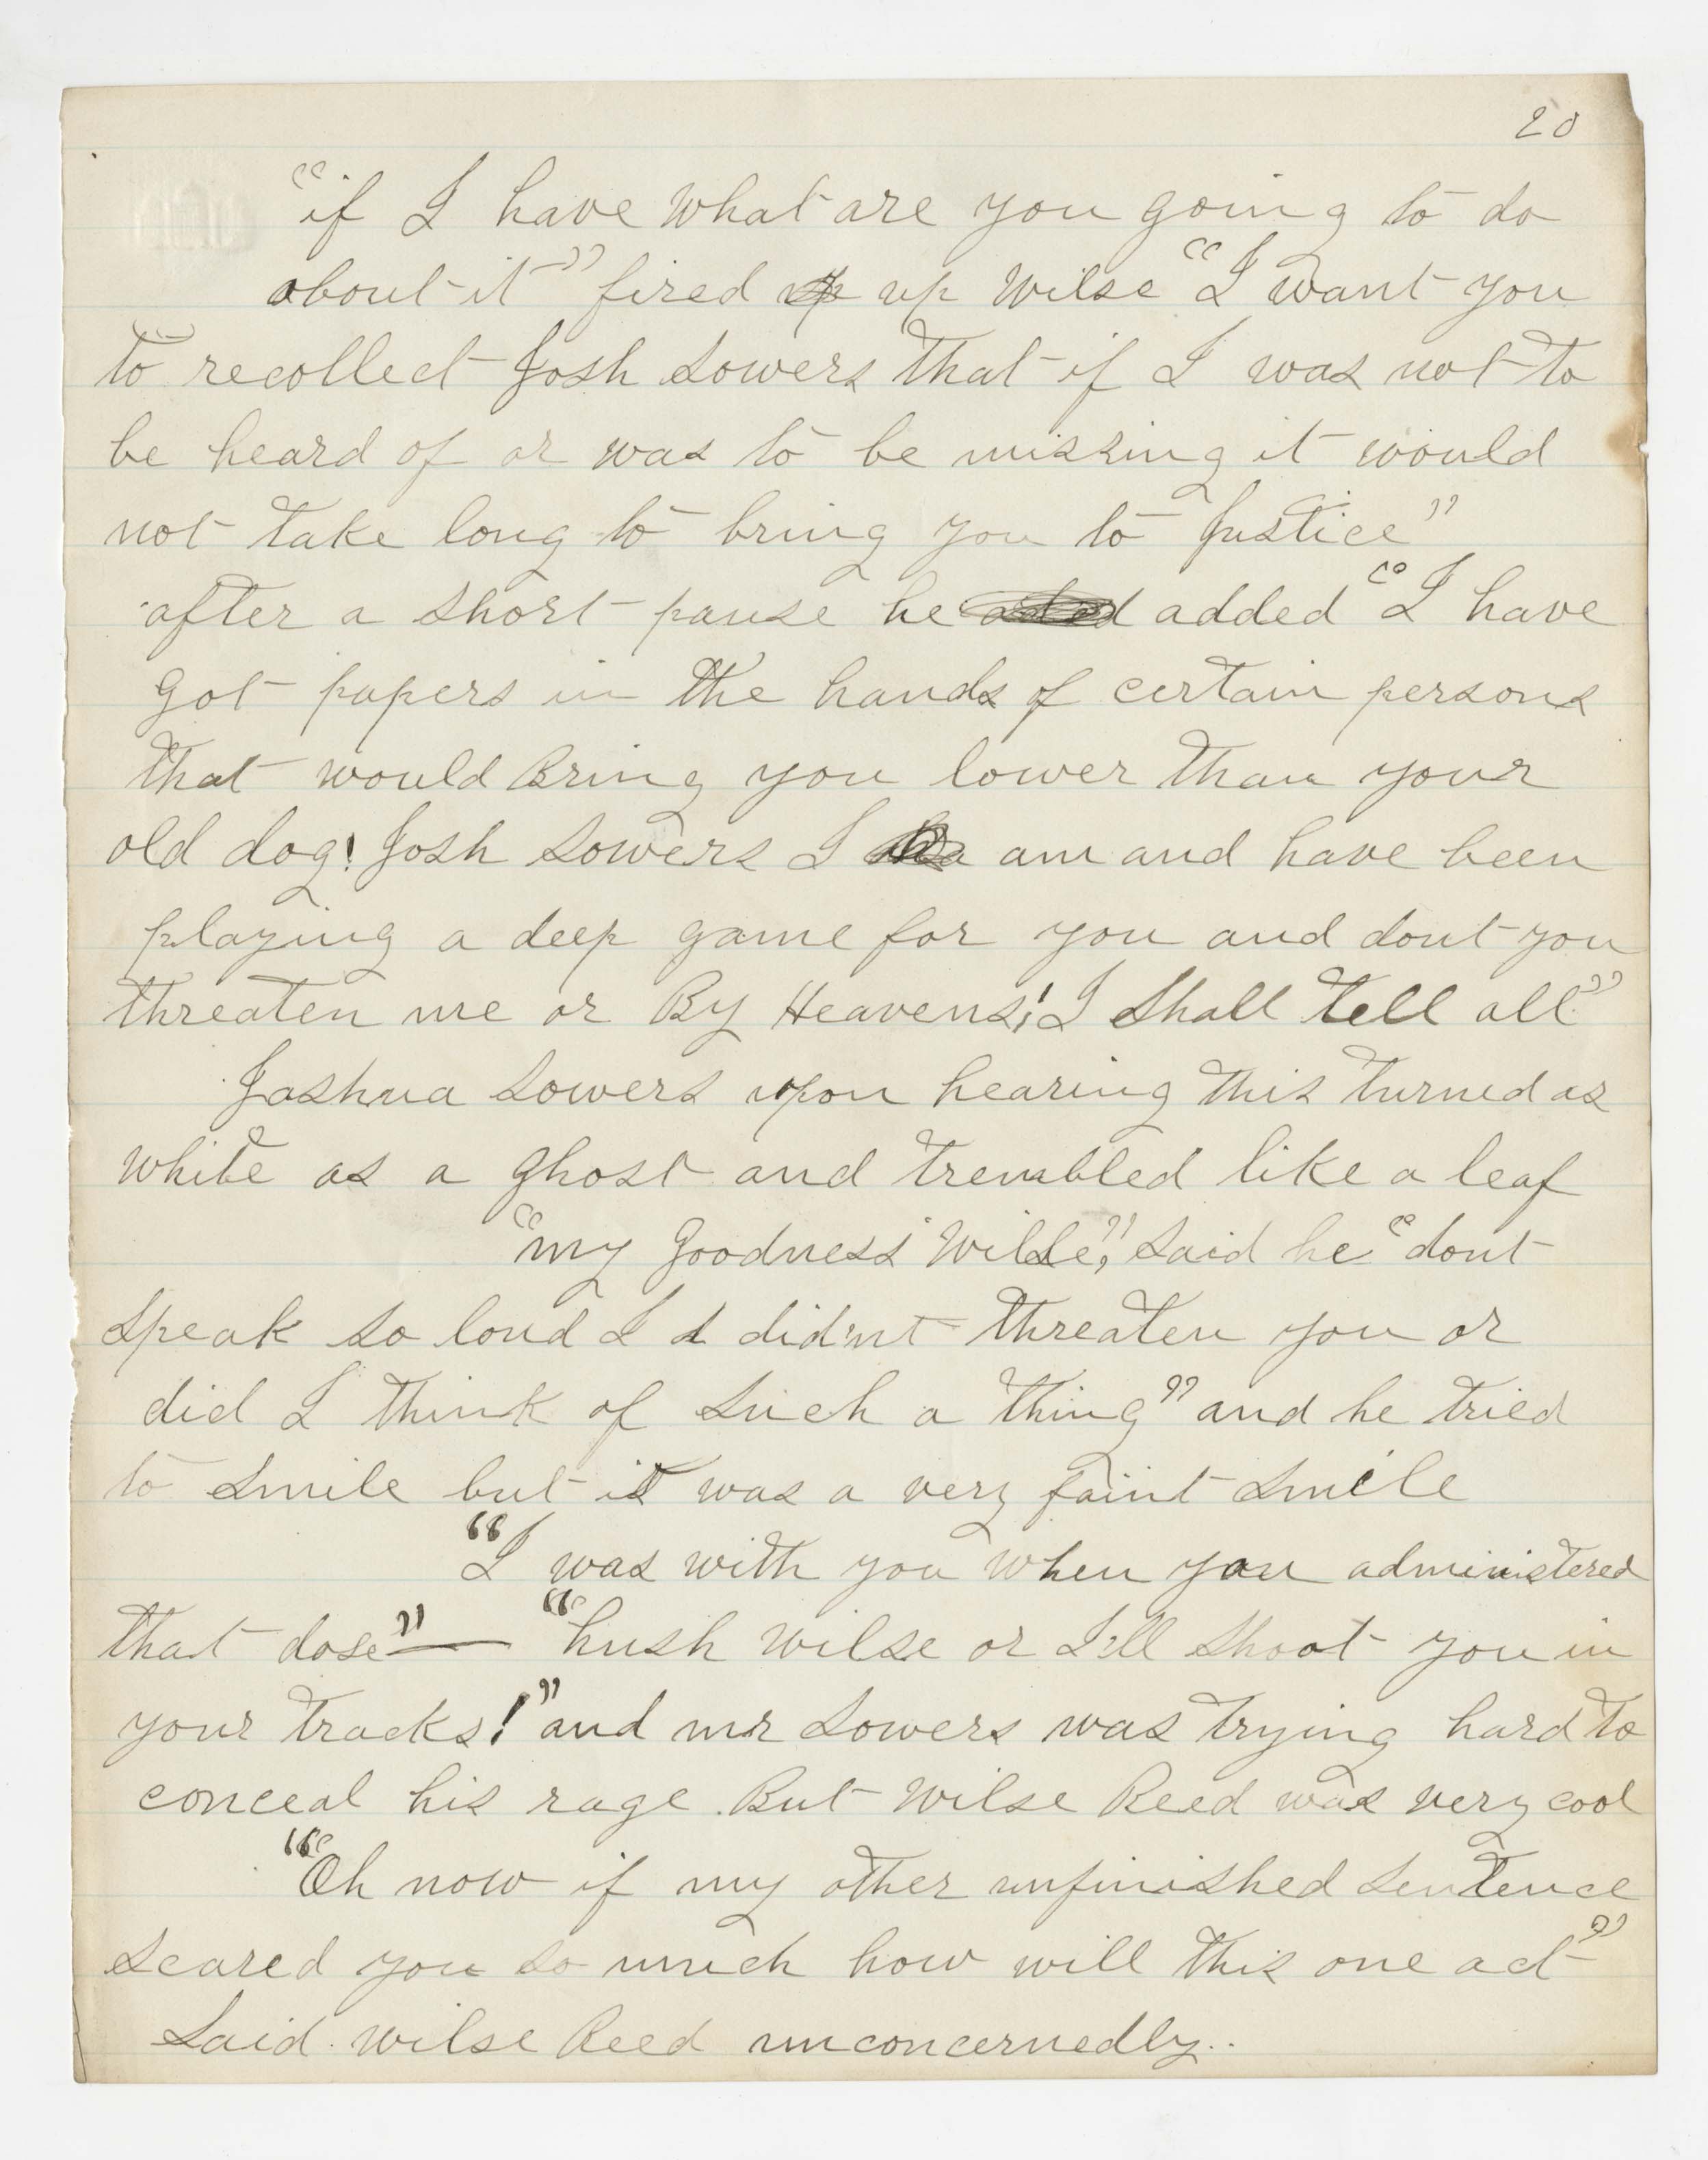 20
"if I have what are you going to do
about it" fired up up Wilse "I want you
to recollect Josh Sowers that if I was not to
be heard of or was to be missing it would
not take long to bring you to Justice"
after a short pause he added "I have
got papers in the hands of certain persons
that would Bring you lower than your
old dog! Josh Sowers I am and have been
playing a deep game for you and dont you
threaten me or By Heavens! I Shall tell all"
Joshua Sowers upon hearing this turned as
white as a ghost and trembled like a leaf
"my Goodness Wilse", said he "dont
speak so loud I d did'nt threaten you or
did I think of such a thing" and he tried
to smile but it was a very faint smile
"I was with you when you administered
that dose" — "hush Wilse or I'll shoot you in
your tracks!" and mr Sowers was trying hard to
conceal his rage. But Wilse Reed was very cool
"Oh now if my other unfinished sentence
scared you so much how will this one act"
Said Wilse Reed unconcernedly..